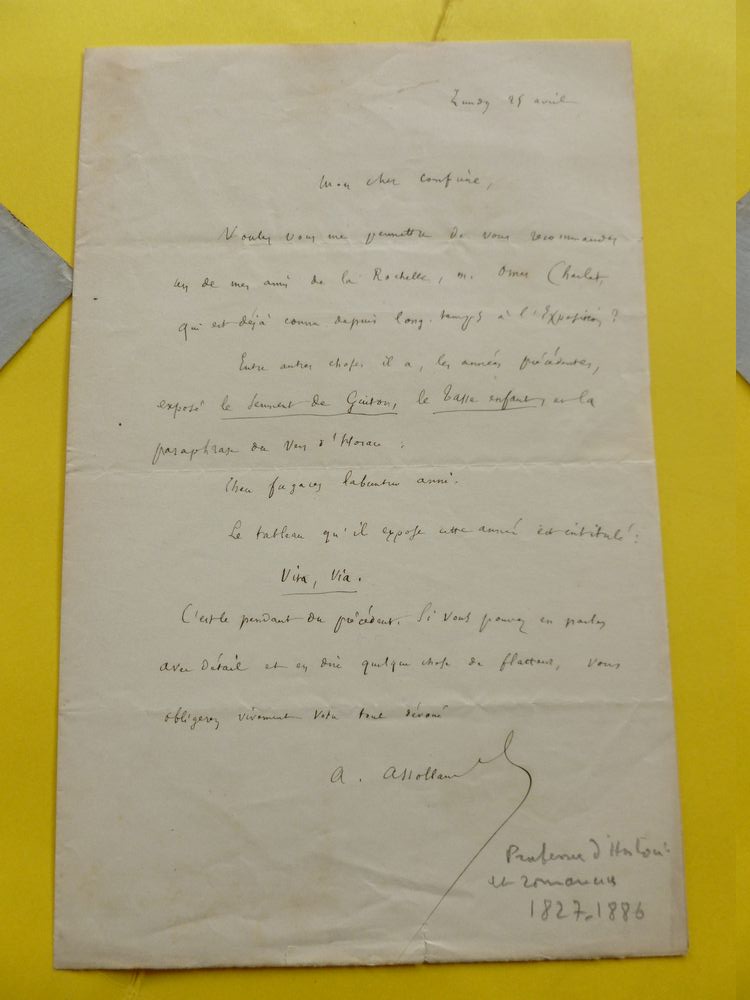 Lundy 25 avril
Mon cher confrère,
Voulez vous me permettre de vous recommander
un de mes amis de la Rochelle, m. Omer Charlet,
qui est déjà connu depuis long-temps à l'Exposition ?
Entre autres choses il a, les années précédentes,
exposé le serment de Guiton, le Tasse enfant, et la
paraphrase du vers d'Horace :
Eheu fugaces labuntur anni.
Le tableau qu'il expose cette année est intitulé :
Vita, Via.
C'est le pendant du précédent. Si vous pouvez en parler
avec détail et en dire quelque chose de flatteur, vous
obligerez vivement votre tout dévoué
A. Assollant
Professeur d'Histoire
et romancier
1827-1886